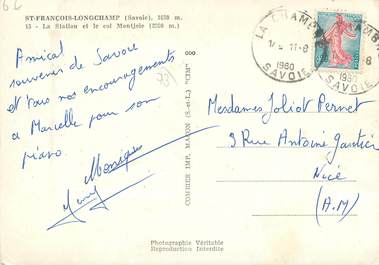 ST-FRANÇOIS-LONGCHAMP (Savoie), 1650 m.
15 - La Station et le col Montjoie (2250 m.)
Amical
souvenir de Savoie
et tous nos encouragements
à Marcelle pour son
piano.
Monique
COMBIER IMP. MACON (S.-et-L.) "CIM"
LA CHAMBRE
11-8
1960
SAVOIE
1960
SAVOIE
Mesdames Joliot Pernet
9 Rue Antoine Gautier
Nice
(A.M)
Photographie Véritable
Reproduction Interdite